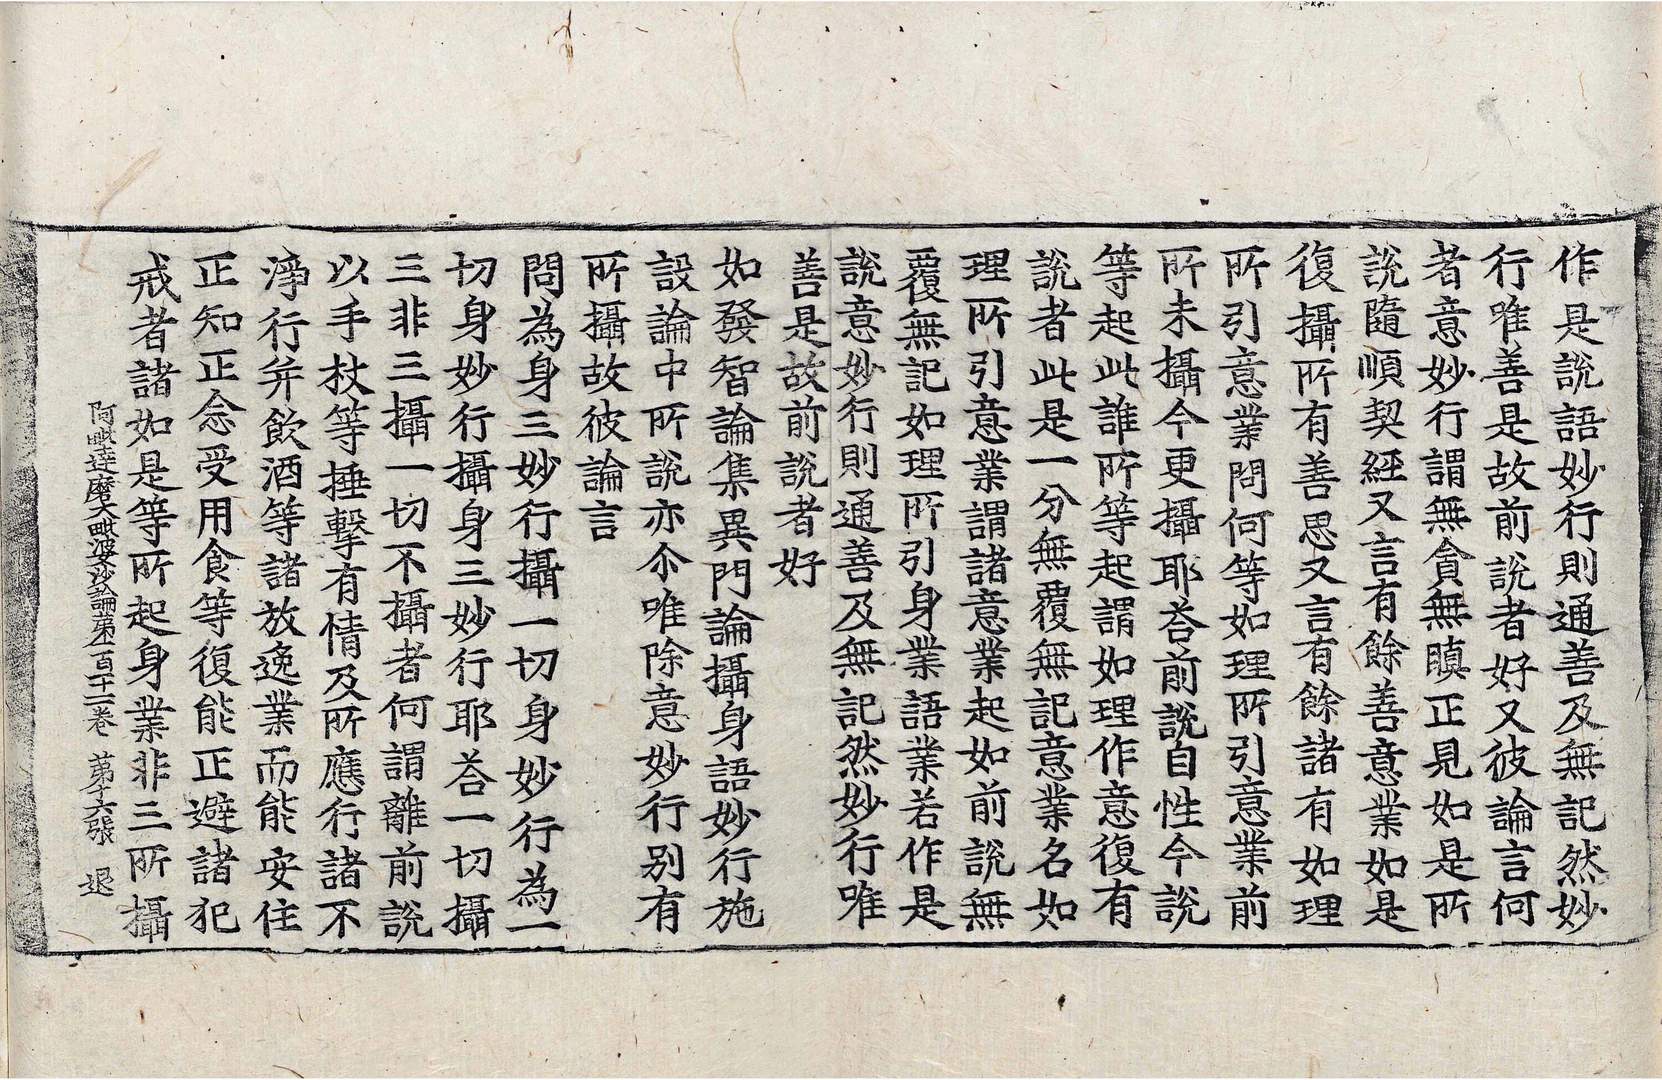 作是說語妙行則通善及無記然妙
行唯善是故前說者好又彼論言何
者意妙行謂無貪無瞋正見如是所
說隨順契經又言有餘善意業如是
復攝所有善思又言有餘諸有如理
所引意業問何等如理所引意業前
所未攝今更攝耶荅前說自性今說
等起此誰所等起謂如理作意復有
說者此是一分無覆無記意業名如
理所引意業謂諸意業起如前說無
覆無記如理所引身業語業若作是
說意妙行則通善及無記然妙行唯
善是故前說者好
如發智論集異門論攝身語妙行施
設論中所說亦尒唯除意妙行別有
所攝故彼論言
問為身三妙行攝一切身妙行為一
切身妙行攝身三妙行耶荅一切攝
三非三攝一切不攝者何謂離前說
以手杖等捶擊有情及所應行諸不
淨行并飲酒等諸放逸業而能安住
正知正念受用食等復能正避諸犯
戒者諸如是等所起身業非三所攝
阿毗達磨大毗婆沙論第一百十二卷 第十六張 退